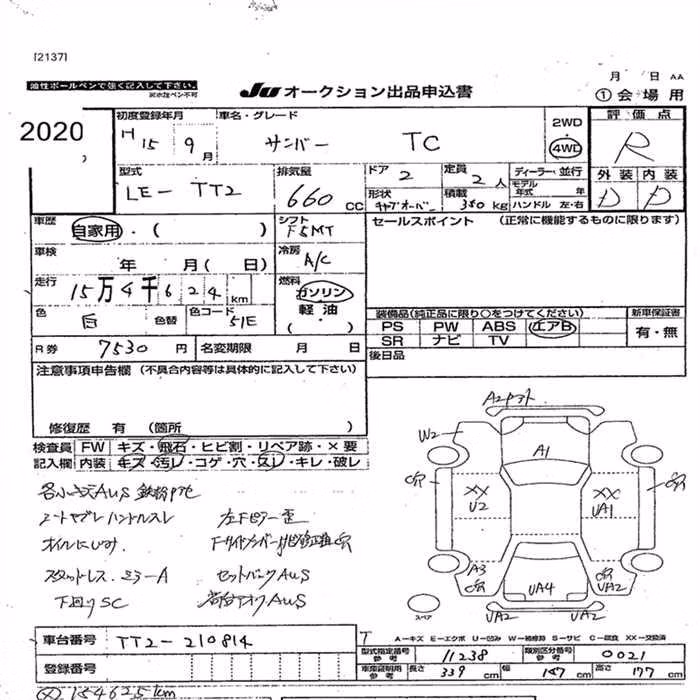 [2137]
月 日 AA
油性ボールペンで強く記入して下さい。
※水性ペン不可
JU オークション出品申込書
① 会場用
2020
初度登録年月
H 15年 9月
車名・グレード
サンバー TC
2WD
4WD
評価点
R
型式
LE-TT2
排気量
660 CC
ドア 2
定員 2人
形状 キャブオーバー
積載 350 kg
ディーラー・並行
モデル年式 年
ハンドル 左・右
外装 内装
D D
車歴
自家用・( )
シフト
F5MT
セールスポイント (正常に機能するものに限ります)
車検
年 月( 日)
冷房
A/C
走行
15万4千624km
燃料
ガソリン
軽油
( )
色
白
色替
色コード
51E
装備品(純正品に限り○をつけてください)
新車保証書
PS PW ABS エアB
SR ナビ TV
有・無
R券 7530円
名変期限 月 日
後日品
注意事項申告欄 (不具合内容等は具体的に記入して下さい)
修復歴 有 (箇所 )
検査員 FW キズ・飛石・ヒビ割・リペア跡・×要
記入欄 内装 キズ・汚レ・コゲ・穴・欠レ・キレ・破レ
W2
A1
穴
XX
U2
XX
UA1
穴
各小キズAUS
オイルにじみ
スタッドレス ミラーA
セットバックAUS
下回りSC
A3
穴
UA4
穴
UA2
スペア
UA2
UA2
車台番号
TT2-210814
T A=キズ E=エクボ U=凹み W=補修跡 S=サビ C=腐食 XX=交換済
型式指定番号
参考
11238
類別区分番号
参考
0021
登録番号
車庫証明用
参考
長さ 339 cm
幅 147 cm
高さ 177 cm
154625km